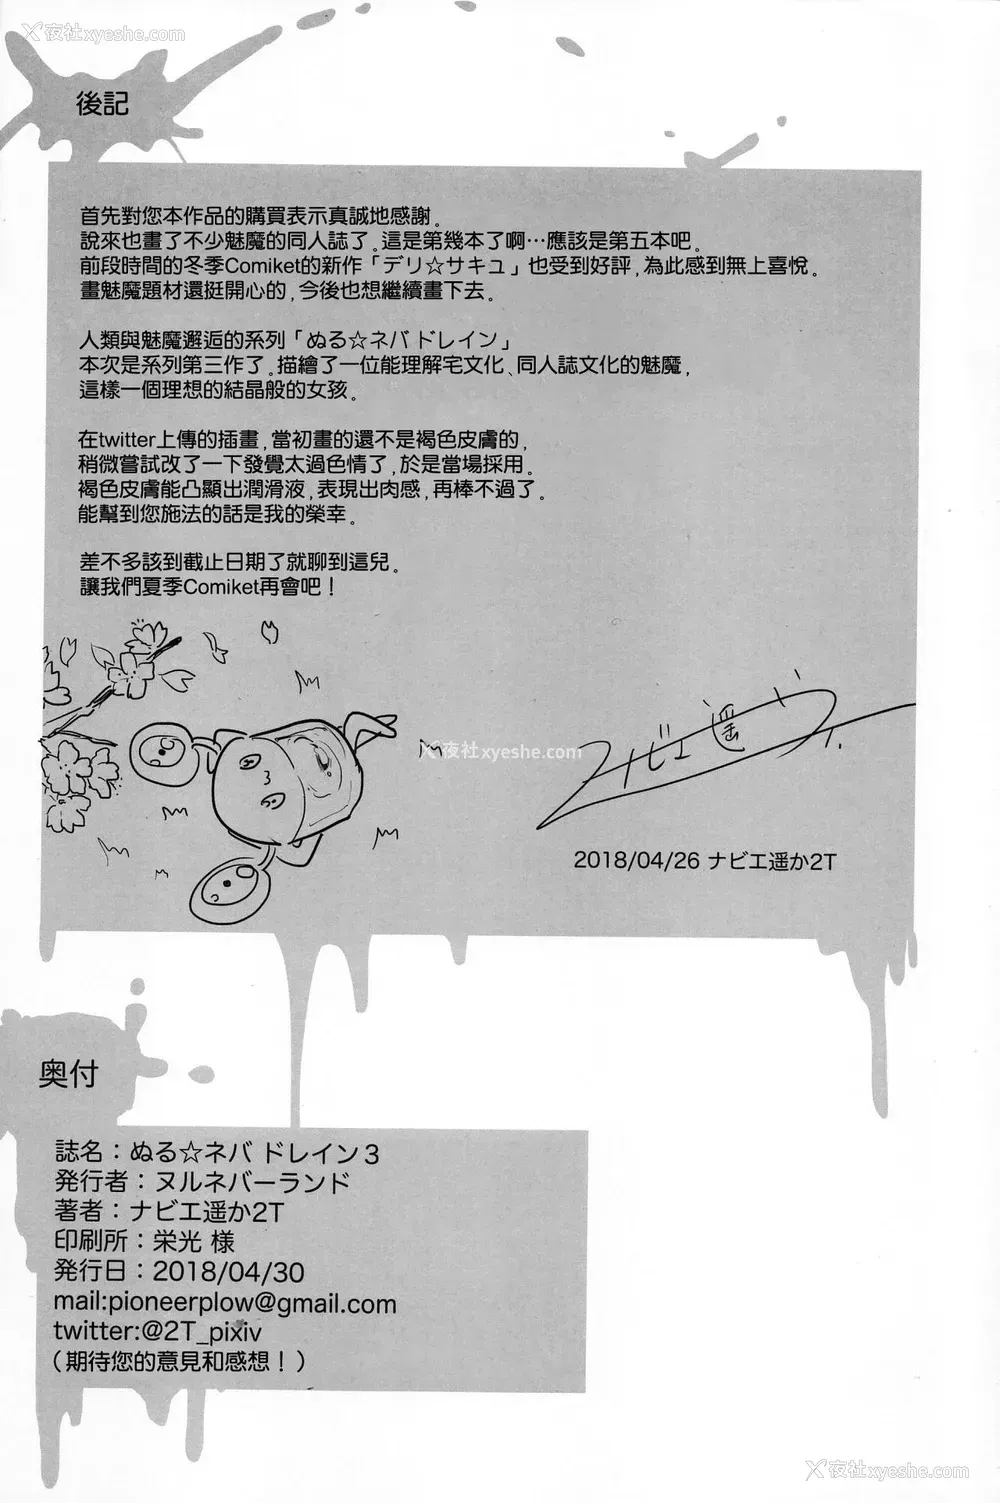 夜社xyeshe.com
夜社xyeshe.com
後記
首先對您本作品的購買表示真誠地感謝。
說來也畫了不少魅魔的同人誌了。這是第幾本了啊…應該是第五本吧。
前段時間的冬季Comiket的新作「デリ☆サキュ」也受到好評,為此感到無上喜悅。
畫魅魔題材還挺開心的,今後也想繼續畫下去。
人類與魅魔邂逅的系列「ぬる☆ネバ ドレイン」
本次是系列第三作了。描繪了一位能理解宅文化、同人誌文化的魅魔,
這樣一個理想的結晶般的女孩。
在twitter上傳的插畫,當初畫的還不是褐色皮膚的,
稍微嘗試改了一下發覺太過色情了,於是當場採用。
褐色皮膚能凸顯出潤滑液,表現出肉感,再棒不過了。
能幫到您施法的話是我的榮幸。
差不多該到截止日期了就聊到這兒。
讓我們夏季Comiket再會吧!
夜社xyeshe.com
ナビエ遥か
2018/04/26 ナビエ遥か2T
奥付
誌名：ぬる☆ネバ ドレイン3
発行者：ヌルネバーランド
著者：ナビエ遥か2T
印刷所：栄光 様
発行日：2018/04/30
mail:pioneerplow@gmail.com
twitter:@2T_pixiv
（期待您的意見和感想！）
夜社xyeshe.com